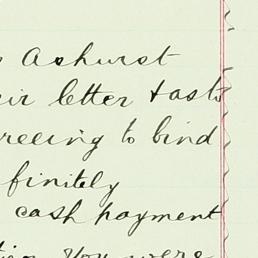 Ashurst
eir letter + asts
reeing to bind
finitely
cash payment
tion you were